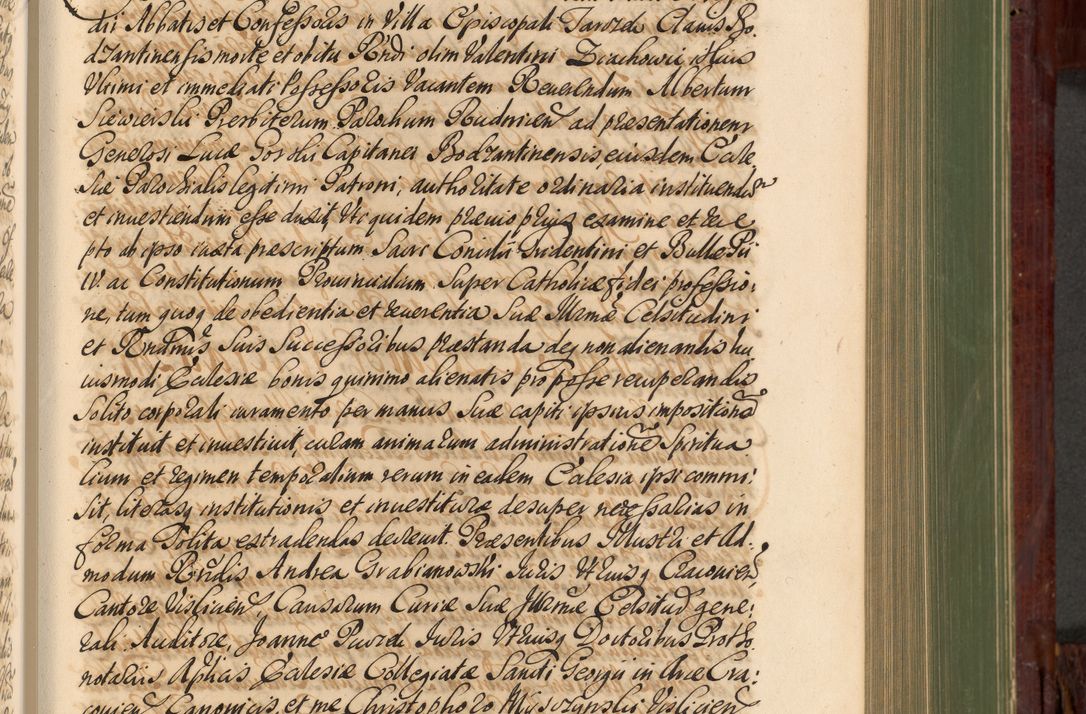 dii Abbatis et Confessoris in Villa Episcopali Tarczek Clavis Bo.
dzantinensis morte et obitu Rndi olim Valentini illius
Vltimi et immediati Possessoris Vacantem Reuerendum Albertum
Siewierski Presbiterum Parochum Rudnicen ad præsentationem
Generosi Lucæ Gorski Capitanei Bodzantinensis, eiusdem Eccle
siæ Parochialis legitimi Patroni, authoritate ordinaria instituendū
et inuestiendum esse duxit, Vti quidem præuio prius examine et rece
pto ab ipso iuxta præscriptum Sacri Concilii Tridentini et Bullæ Pii
IV. ac Constitutionum Prouincialium super Catholicæ fidei professio:
ne, tum quoq de obedientia et reuerentia Suæ Illrmæ Celsitudini
et Rndmis Suis Successoribus præstanda deq non alienandis hu
iusmodi Ecclesiæ bonis quinimo alienatis pro posse recuperandis
solito corporali iuramento per manus Suæ capiti ipsius impositionē
instituit et inuestiuit, curam animarum administrationē Spiritua
lium et regimen temporalium rerum in eadem Ecclesia ipsi commi:
sit, literasq institutionis et inuestituræ desuper necessarias in
forma Solita extradendas decreuit. Præsentibus Illustri et Ad.
modum Rndis Andrea Grabianowski Juris Vtriusq Cracouien,
Cantore Vislicien, Causarum Curiæ Suæ Illrmæ Celsitud gene:
rali Auditore, Joanne Juris Vtriusq Doctoribus Protho
notariis Aplicis Ecclesiæ Collegiatæ Sancti Georgii in Arce Cra:
couien Canonicis, et me Christophoro Vislicien